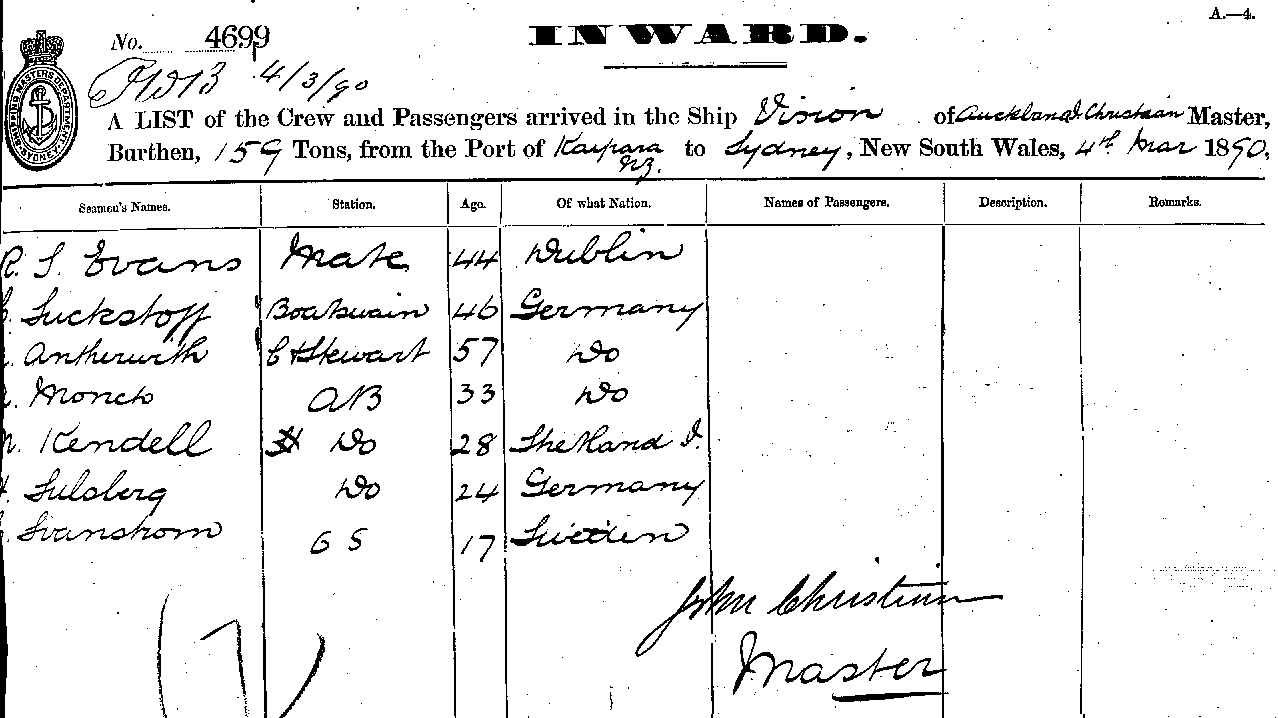 A.—4.
No. 4699
INWARD.
4/3/90
A LIST of the Crew and Passengers arrived in the Ship Vision of Auckland J Christian Master,
Burthen, 159 Tons, from the Port of Kaipara NZ. to Sydney, New South Wales, 4th Mar 1890,
Seamen's Names. Station. Age. Of what Nation. Names of Passengers. Description. Remarks.
R. S. Evans Mate 44 Dublin
Luckstoff Boatswain 46 Germany
C & Stewart 57 Do
AB 33 Do
Kendell Do 28 Shetland I.
Do 24 Germany
17 Sweden
John Christian
Master
(7)
SHIPPING MASTERS DEPARTMENT SYDNEY